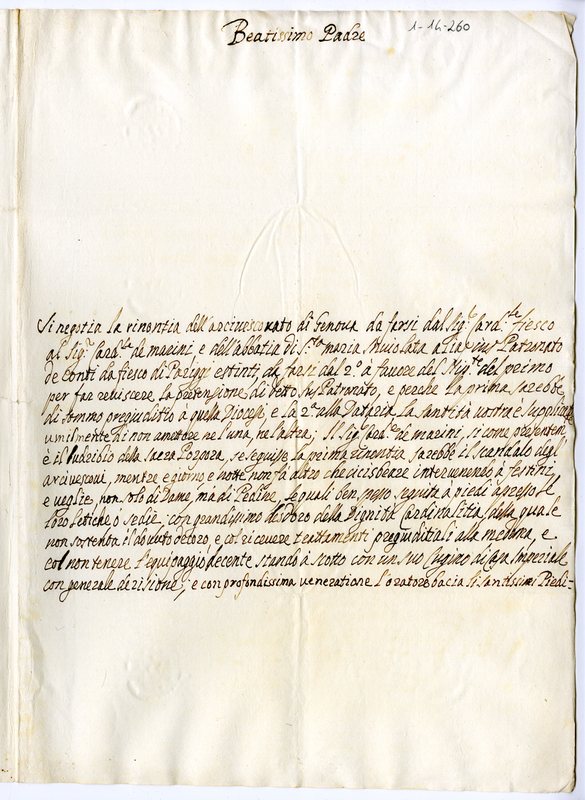 Beatissimo Padre
1-14-260
Si negotia la rinontia dell'arciuescouato di Genoua da farsi dal Sig.r Card.le fiesco
al Sig.r Card.le de marini, e dell'abbatia di S.ta maria Jus Patronato
de Conti da fiesco di estinti, da farsi dal 2.o a fauore del Nig.te del primo
per far reuiscere la pretensione di detto Jus Patronato, e perche la prima sarebbe
di sommo pregiuditio a quella Diocesi, e la 2.a alla Dataria la Santità vostra è supplicata
umilmente di non ametere ne l'una, ne l'altra; Il Sig.r Card.le de marini, si come presentem
è il ludribio della Sacra Porpora, se seguisse la prima rinontia sarebbe il scandalo degl
arciuescoui, mentre e giorno, e notte non fà altro che cicisbeare interuenendo à festini,
e veglie, non solo di Dame, ma di Pedine, le quali ben spesso seguita à piedi appresso le
loro letiche ò sedie, con grandissimo della Dignità Cardinalitia, della quale
non sostenta il douuto decoro, e col riceuere trattamenti pregiuditiali alla medma, e
col non tenere l'equipaggio decente stando à scotto con un suo Cugino di Casa Imperiale
con generale derisione; e con profondissima veneratione l'oratore bacia li santissimi Piedi-